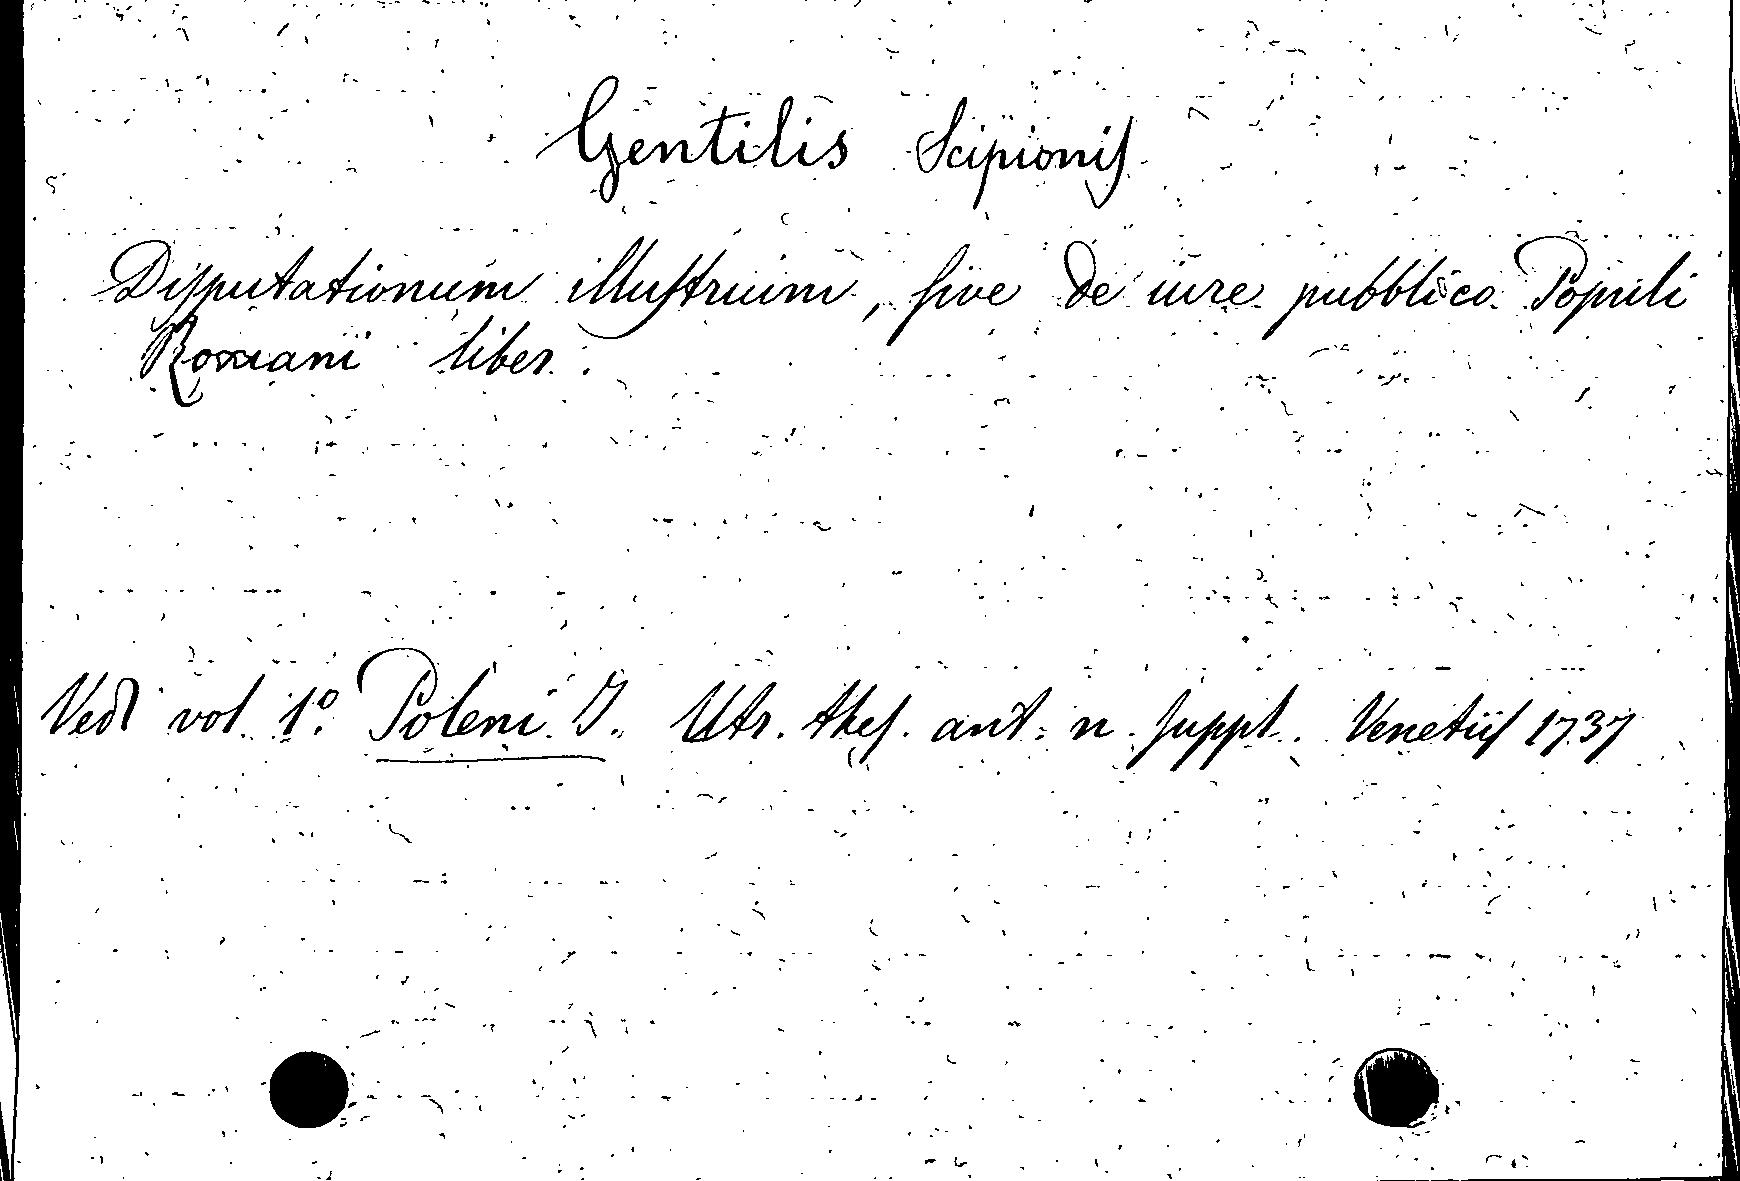 Gentilis Scipionis
Disputationum illustrium, sive de iure pubblico Populi
Romani liber.
Vedi vol. 1º. Poleni J. Utr. thes. ant. n. suppl. Venetiis 1737